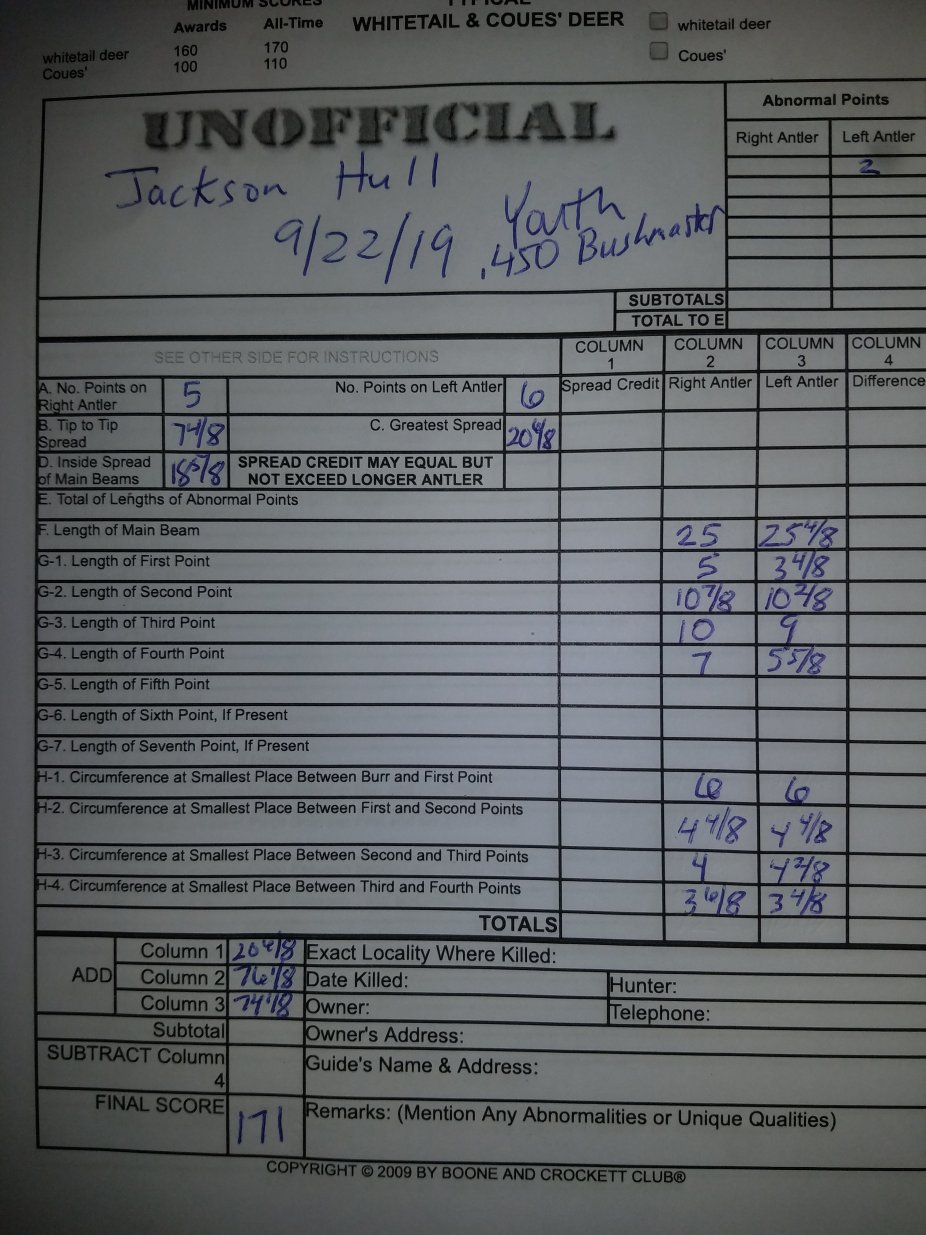 MINIMUM SCORES
TYPICAL
Awards All-Time WHITETAIL & COUES' DEER whitetail deer
whitetail deer 160 170
Coues' 100 110 Coues'
UNOFFICIAL
Abnormal Points
Right Antler Left Antler
2
Jackson Hull
9/22/19 Youth
.450 Bushmaster
SUBTOTALS
TOTAL TO E
SEE OTHER SIDE FOR INSTRUCTIONS
COLUMN 1 COLUMN 2 COLUMN 3 COLUMN 4
A. No. Points on Right Antler 5 No. Points on Left Antler 6 Spread Credit Right Antler Left Antler Difference
B. Tip to Tip Spread 7 4/8 C. Greatest Spread 20 4/8
D. Inside Spread of Main Beams 18 5/8 SPREAD CREDIT MAY EQUAL BUT NOT EXCEED LONGER ANTLER
E. Total of Lengths of Abnormal Points
F. Length of Main Beam 25 25 4/8
G-1. Length of First Point 5 3 4/8
G-2. Length of Second Point 10 7/8 10 2/8
G-3. Length of Third Point 10 9
G-4. Length of Fourth Point 7 5 5/8
G-5. Length of Fifth Point
G-6. Length of Sixth Point, If Present
G-7. Length of Seventh Point, If Present
H-1. Circumference at Smallest Place Between Burr and First Point 6 6
H-2. Circumference at Smallest Place Between First and Second Points 4 4/8 4 4/8
H-3. Circumference at Smallest Place Between Second and Third Points 4 4 2/8
H-4. Circumference at Smallest Place Between Third and Fourth Points 3 6/8 3 4/8
TOTALS
ADD Column 1 20 4/8 Exact Locality Where Killed:
Column 2 76 1/8 Date Killed: Hunter:
Column 3 74 1/8 Owner: Telephone:
Subtotal Owner's Address:
SUBTRACT Column 4 Guide's Name & Address:
FINAL SCORE 171 Remarks: (Mention Any Abnormalities or Unique Qualities)
COPYRIGHT © 2009 BY BOONE AND CROCKETT CLUB®